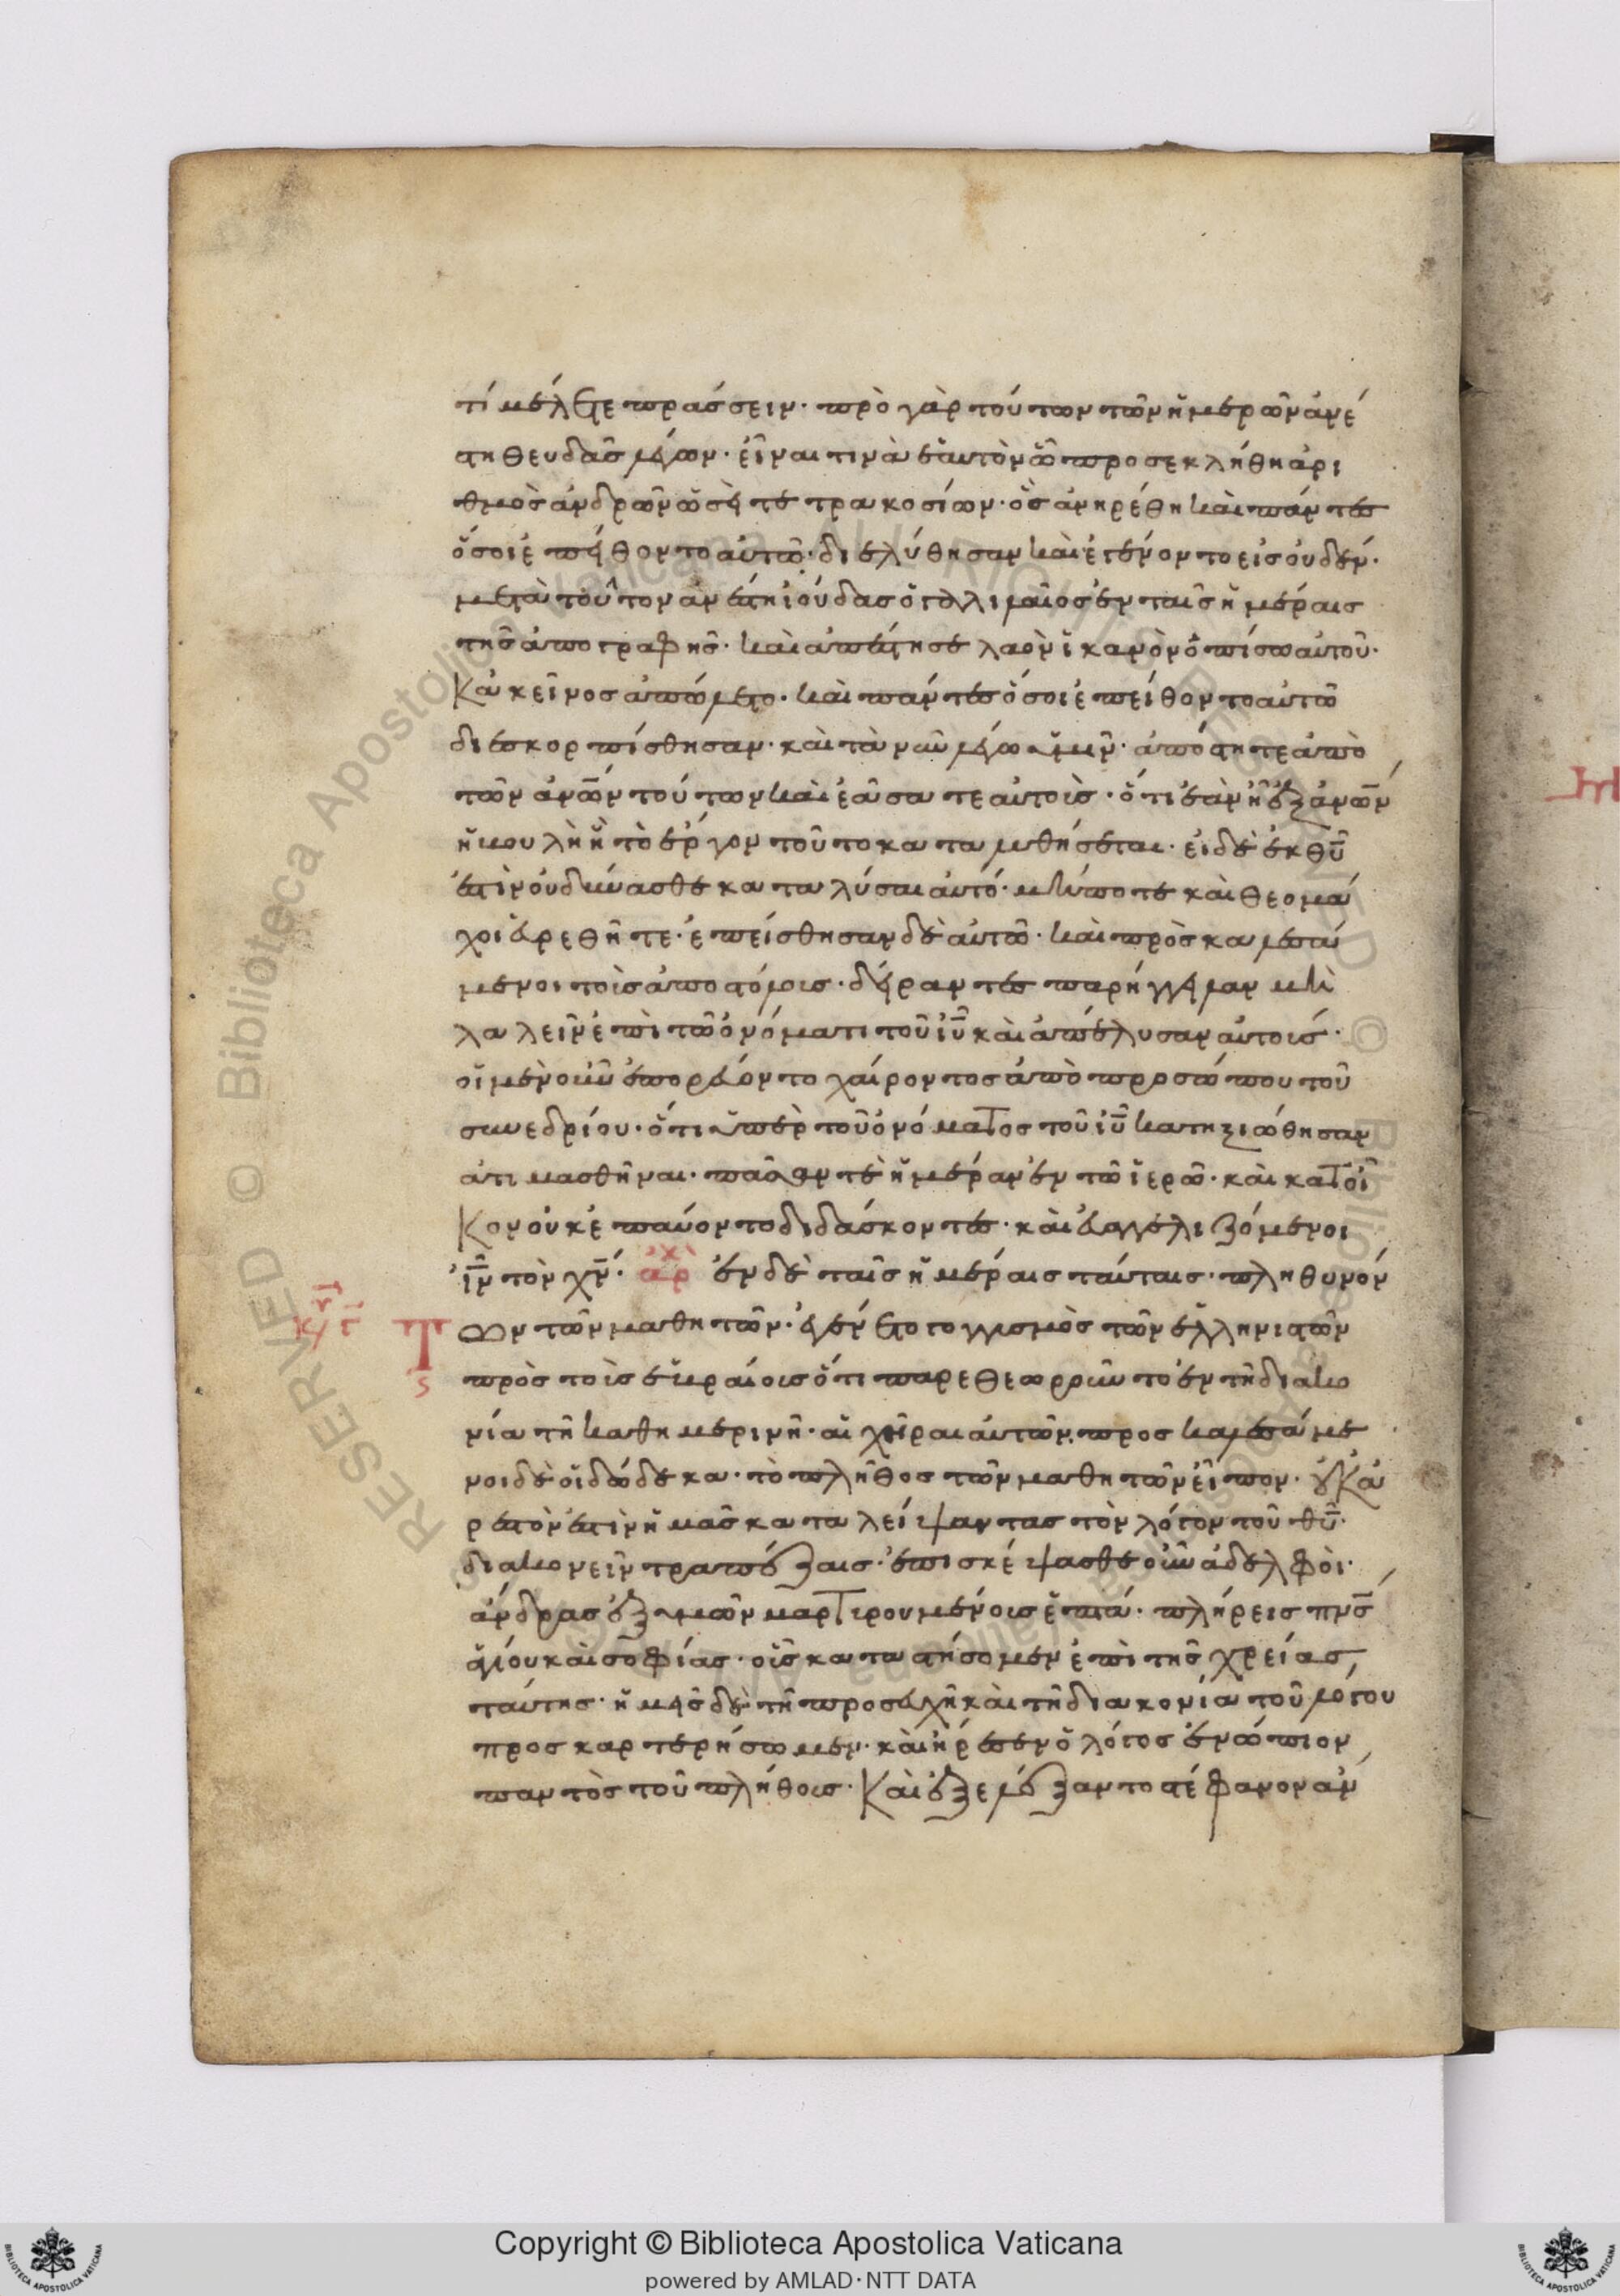 τί μέλλετε πράσσειν· πρὸ γὰρ τούτων τῶν ἡμερῶν ἀνέ
στη θευδᾶς λέγων· εἶναι τινὰ ἑαυτὸν ὧ προσεκλήθη ἀρι
θμὸς ἀνδρῶν ὡσεὶ τετρακοσίων· ὃς ἀνηρέθη καὶ πάντες
ὅσοι ἐπείθοντο αὐτῶ· διελύθησαν καὶ ἐγένοντο εἰς οὐδέν·
μετὰ τοῦτον ἀνέστη ἰούδας ὁ γαλιλαῖος ἐν ταῖς ἡμέραις
τῆς ἀπογραφῆς· καὶ ἀπέστησε λαὸν ἱκανὸν ὀπίσω αὐτοῦ·
Κἀκεῖνος ἀπώλετο· καὶ πάντες ὅσοι ἐπείθοντο αὐτῶ
διεσκορπίσθησαν· καὶ τὰ νῦν λέγω ὑμῖν· ἀπόστητε ἀπὸ
τῶν ἀνῶν τούτων καὶ ἐάσατε αὐτούς· ὅτι ἐὰν ἦ ἐξ ἀνῶν
ἡ βουλὴ ἢ τὸ ἔργον τοῦτο καταλυθήσεται· εἰ δὲ ἐκ θυ
ἐστὶν οὐ δύνασθε καταλύσαι αὐτό· μήποτε καὶ θεομά
χοι εὑρεθῆτε· ἐπείσθησαν δὲ αὐτῶ· καὶ προσκαλεσά
μενοι τοὺς ἀποστόλους· δείραντες παρήγγειλαν μὴ
λαλεῖν ἐπὶ τῶ ὀνόματι τοῦ ιυ καὶ ἀπέλυσαν αὐτούς·
οἱ μὲν οὖν ἐπορεύοντο χαίροντες ἀπὸ προσώπου τοῦ
συνεδρίου· ὅτι ὑπὲρ τοῦ ὀνόματος τοῦ ιυ κατηξιώθησαν
ἀτιμασθῆναι· πᾶσαν τὲ ἡμέραν ἐν τῶ ἱερῶ· καὶ κατοῖ
Κον οὐκ ἐπαύοντο διδάσκοντες· καὶ εὐαγγελιζόμενοι
ιν τὸν χν· ἀρχ ἐν δὲ ταῖς ἡμέραις ταύταις· πληθυνόν
Των τῶν μαθητῶν· ἐγένετο γογγυσμὸς τῶν ἑλληνιστῶν
πρὸς τοὺς ἑβραίους ὅτι παρεθεωροῦντο ἐν τῆ διακο
νία τῆ καθημερινῆ· αἱ χῆραι αὐτῶν· προσκαλεσάμε
νοι δὲ οἱ δώδεκα· τὸ πλῆθος τῶν μαθητῶν εἶπον· οὐκ ἀ
ρεστὸν ἐστὶν ἡμᾶς καταλείψαντας τὸν λόγον τοῦ θυ·
διακονεῖν τραπέζαις· ἐπισκέψασθε οὖν ἀδελφοὶ·
ἄνδρας ἐξ ὑμῶν μαρτυρουμένους ἑπτά· πλήρεις πνς
ἁγίου καὶ σοφίας· οὓς καταστήσομεν ἐπὶ τῆς χρείας
ταύτης· ἡμεῖς δὲ τῆ προσευχῆ καὶ τῆ διακονία τοῦ λόγου
προσκαρτερήσωμεν· καὶ ἤρεσεν ὁ λόγος ἐνώπιον
παντὸς τοῦ πλήθους· Καὶ ἐξελέξαντο στέφανον ἄν
Copyright © Biblioteca Apostolica Vaticana
powered by AMLAD·NTT DATA